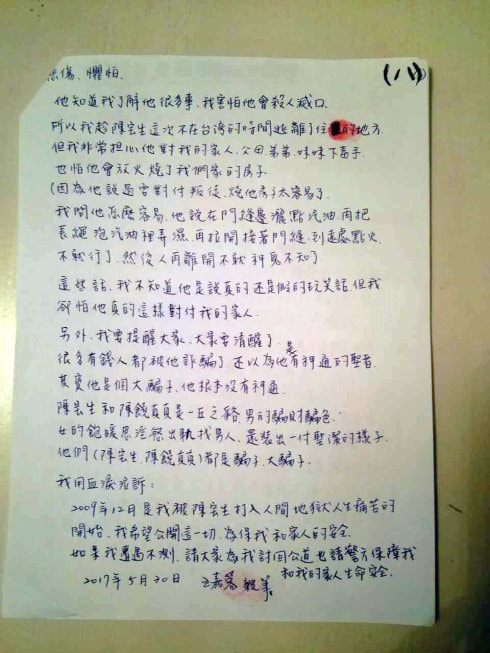 悲傷、懼怕、
(八)
他知道我了解他很多事,我害怕他會殺人滅口、
所以我趁陳宏生這次不在台灣的時間逃離了住的地方
但我非常担心他對我的家人、父母弟弟、妹妹下毒手、
也怕他會放火燒了我們家的房子
(因為他說過要對付叛徒、燒他房子太容易了、
我問他怎麼容易、他說在門縫邊灑點汽油、再把
長繩泡汽油裡弄濕、再拉開接著門縫、到遠處點火、
不就行了、然後人再離開不就神鬼不知了
這些話、我不知道他是說真的还是假的玩笑話、但我
卻怕他真的這樣對付我的家人、
另外、我要提醒大家、大家要清醒了、
很多有錢人都被他詐騙了、还以為他是有神通的聖者、
其實他是個大騙子、他根本沒有神通、
陳宏生和陳饒真真是一丘之貉、男的騙財騙色、
女的飽暖思淫慾出軌找男人、還裝出一付聖潔的樣子、
他們(陳宏生、陳饒真真)都是騙子、大騙子、
我用血淚泣訴:
2009年12月是我被陳宏生打入人間地獄人生痛苦的
開始、我希望公開這一切、為保我和家人的安全、
如果我遭遇不測、請大家為我討回公道也請警方保障我
和我的家人生命安全、
2017年5月30日 親筆